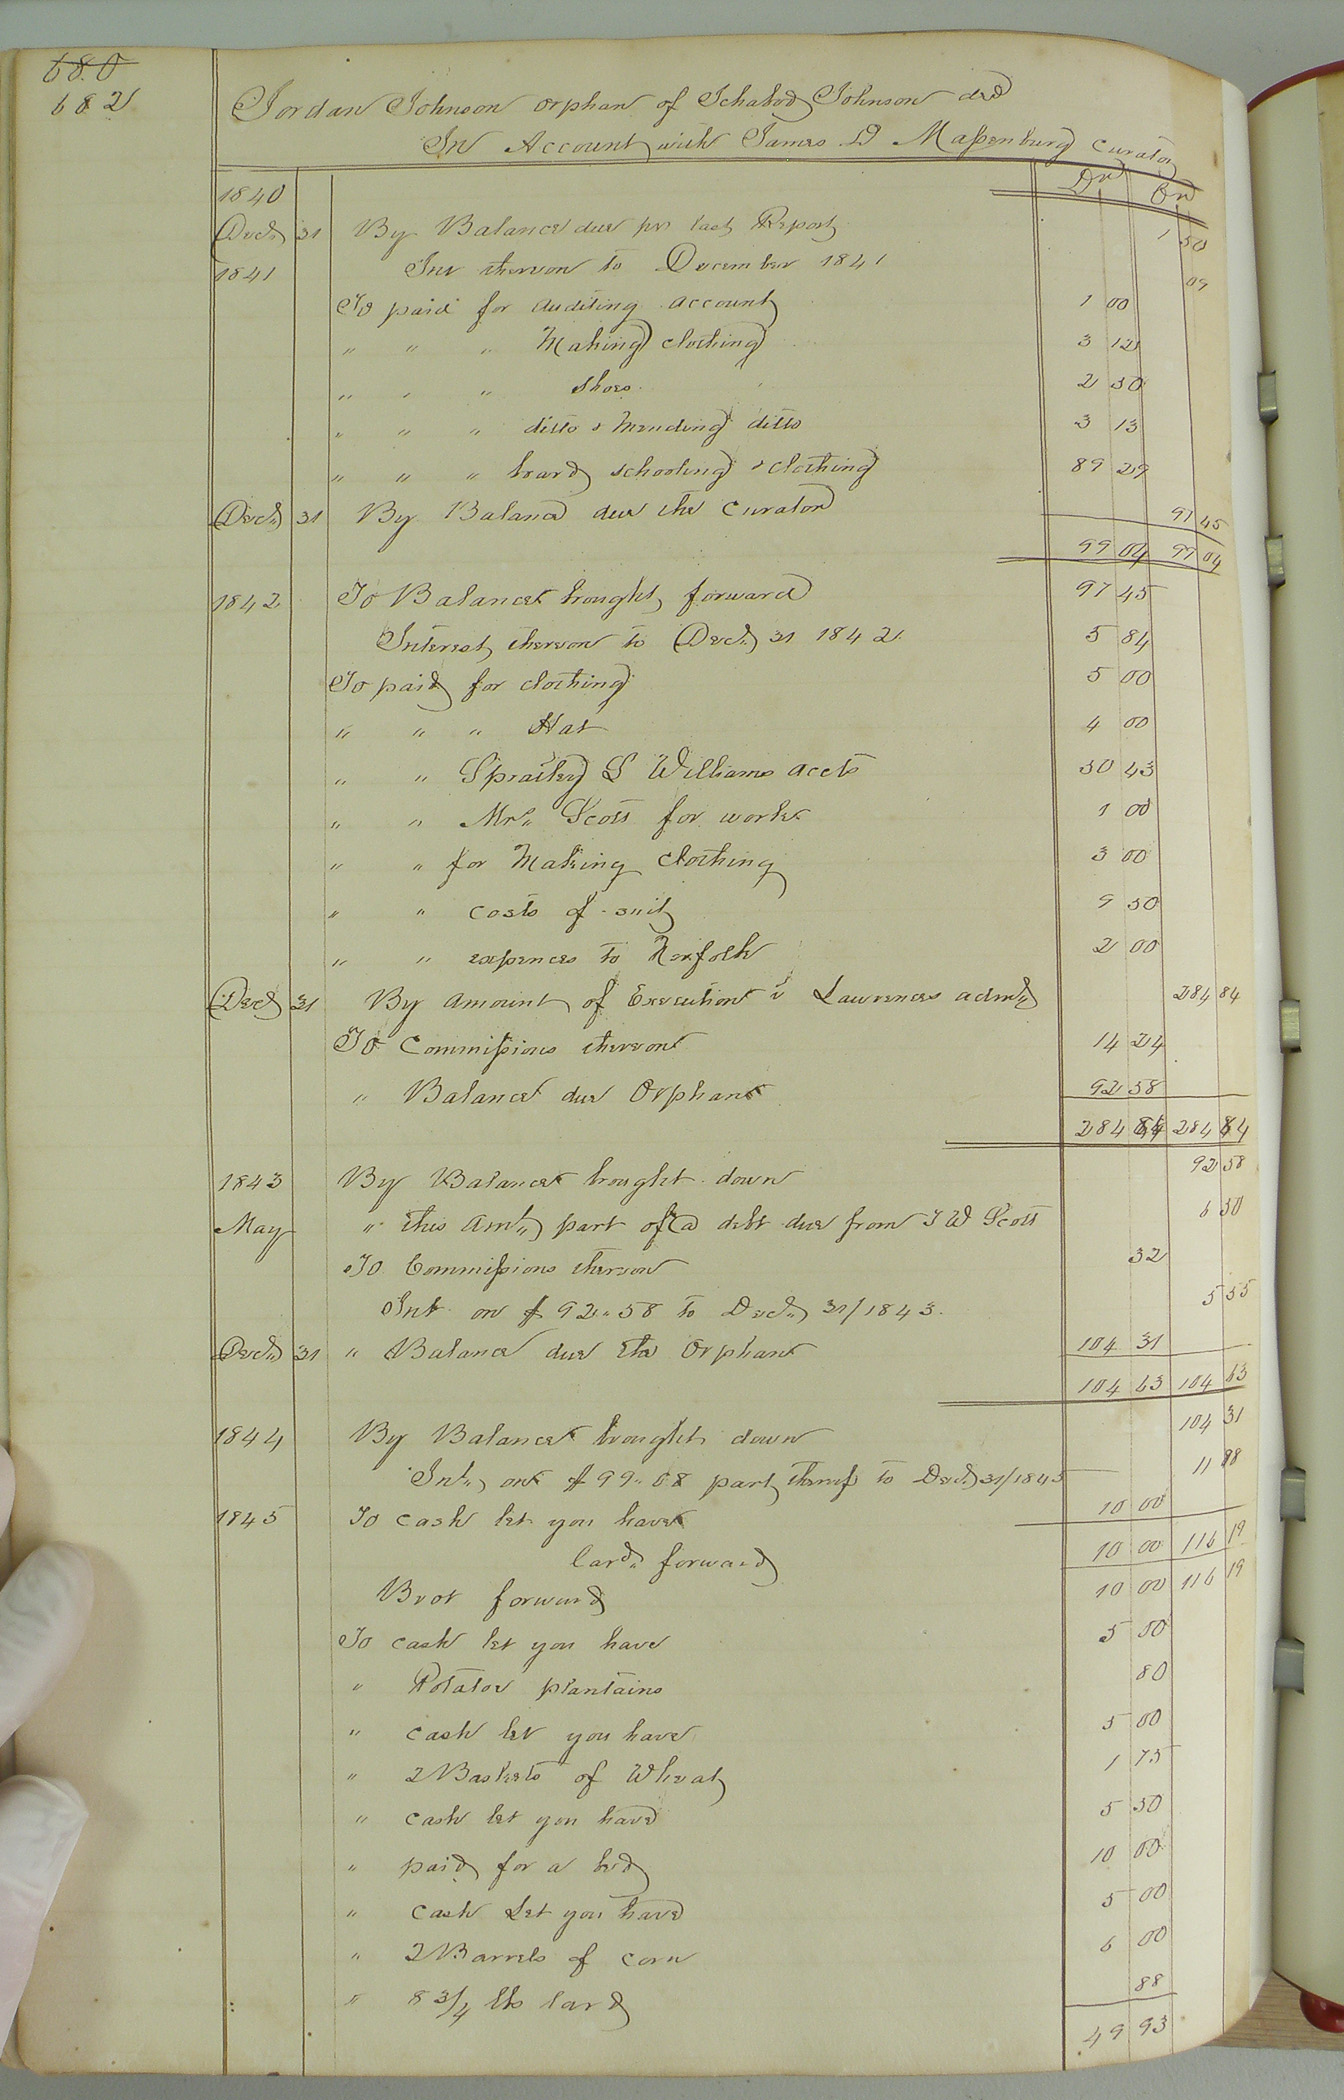 680
682
Jordan Johnson orphan of Ichabod Johnson decd
In Account with James D Massenburg curator
Dr Cr
1840
Decr 31 By Balance due per last Report 1 50
1841 Int thereon to December 1841 09
To paid for auditing account 1 00
" " " Making clothing 3 12
" " " shoes 2 50
" " " ditto & mending ditto 3 13
" " " board, schooling & clothing 89 29
Decr 31 By Balance due the curator 97 45
99 04 99 04
1842 To Balance brought forward 97 45
Interest thereon to Decr 31 1842 5 84
To paid for clothing 5 00
" " " Hat 4 00
" " Spratley & Williams accts 50 43
" " Mrs Scott for work 1 00
" " for Making clothing 3 00
" " costs of suit 9 50
" " expences to Norfolk 2 00
Decr 31 By amount of Execution v Lawrences admr 284 84
To Commissions thereon 14 24
" Balance due Orphan 92 58
284 84 284 84
1843 By Balance brought down 92 58
May " this Amt part of a debt due from J W Scott 6 50
To Commissions thereon 32
Int on $92"58 to Decr 31/1843 5 55
Decr 31 " Balance due the Orphan 104 31
104 63 104 63
1844 By Balance brought down 104 31
Int on $99"08 part thereof to Decr 31/1845 11 88
1845 To cash let you have 10 00
Card forward 10 00 116 19
Brot forward 10 00 116 19
To cash let you have 5 50
" Potatoe plantains 80
" cash let you have 5 00
" 2 Baskets of Wheat 1 75
" cash let you have 5 50
" paid for a bed 10 00
" cash Let you have 5 00
" 2 Barrels of corn 6 00
" 8 3/4 lbs lard 88
49 93